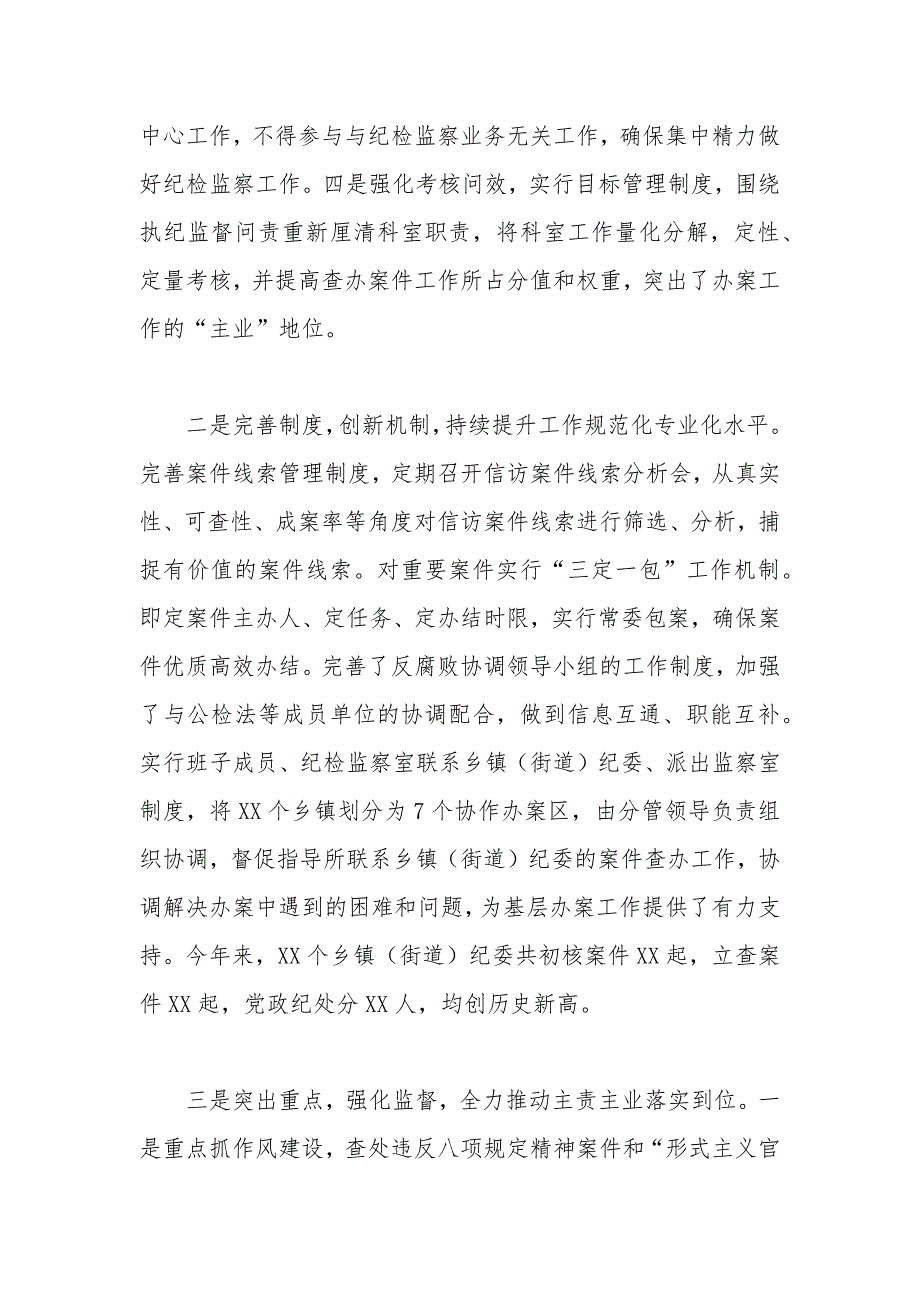 中心工作，不得参与与纪检监察业务无关工作，确保集中精力做
好纪检监察工作。四是强化考核问效，实行目标管理制度，围绕
执纪监督问责重新厘清科室职责，将科室工作量化分解，定性、
定量考核，并提高查办案件工作所占分值和权重，突出了办案工
作的“主业”地位。
二是完善制度，创新机制，持续提升工作规范化专业化水平。
完善案件线索管理制度，定期召开信访案件线索分析会，从真实
性、可查性、成案率等角度对信访案件线索进行筛选、分析，捕
捉有价值的案件线索。对重要案件实行“三定一包”工作机制。
即定案件主办人、定任务、定办结时限，实行常委包案，确保案
件优质高效办结。完善了反腐败协调领导小组的工作制度，加强
了与公检法等成员单位的协调配合，做到信息互通、职能互补。
实行班子成员、纪检监察室联系乡镇（街道）纪委、派出监察室
制度，将 XX 个乡镇划分为 7 个协作办案区，由分管领导负责组
织协调，督促指导所联系乡镇（街道）纪委的案件查办工作，协
调解决办案中遇到的困难和问题，为基层办案工作提供了有力支
持。今年来，XX 个乡镇（街道）纪委共初核案件 XX 起，立查案
件 XX 起，党政纪处分 XX 人，均创历史新高。
三是突出重点，强化监督，全力推动主责主业落实到位。一
是重点抓作风建设，查处违反八项规定精神案件和“形式主义官